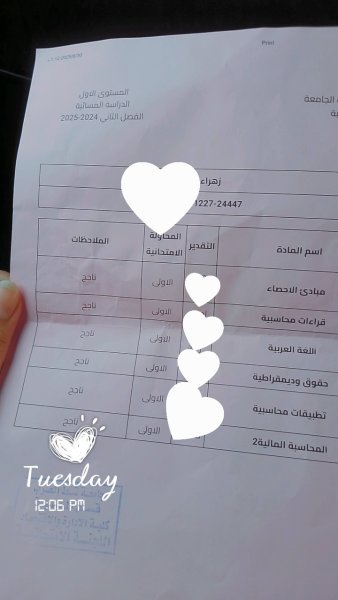 Print
المستوى الاول
الجامعة
الدراسة المسائية
الفصل الثاني 2024-2025
زهراء
1227-24447
اسم المادة التقدير المحاولة الامتحانية الملاحظات
مبادئ الاحصاء الاولى ناجح
قراءات محاسبية الاولى ناجح
اللغة العربية الاولى ناجح
حقوق وديمقراطية الاولى ناجح
تطبيقات محاسبية الاولى ناجح
المحاسبة المالية2 الاولى ناجح
Tuesday
12:06 PM
كلية الادارة والاقتصاد